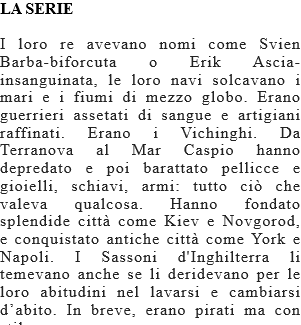 LA SERIE
I loro re avevano nomi come Svien
Barba-biforcuta o Erik Ascia-
insanguinata, le loro navi solcavano i
mari e i fiumi di mezzo globo. Erano
guerrieri assetati di sangue e artigiani
raffinati. Erano i Vichinghi. Da
Terranova al Mar Caspio hanno
depredato e poi barattato pellicce e
gioielli, schiavi, armi: tutto ciò che
valeva qualcosa. Hanno fondato
splendide città come Kiev e Novgorod,
e conquistato antiche città come York e
Napoli. I Sassoni d'Inghilterra li
temevano anche se li deridevano per le
loro abitudini nel lavarsi e cambiarsi
d’abito. In breve, erano pirati ma con